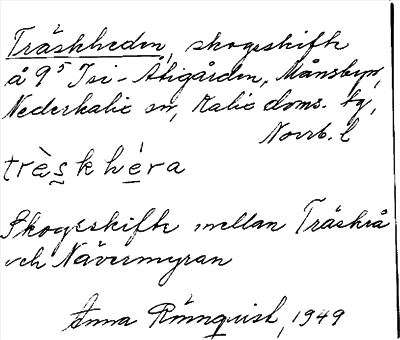 Träskheden, skogsskifte
å 9⁵ Isi-Åtigården, Månsbyn,
Nederkalix sn, Kalix doms. tg,
Norrb. l
trèskhéra
Skogsskifte mellan Träskå
och Nävermyran
Anna Rönnquist, 1949